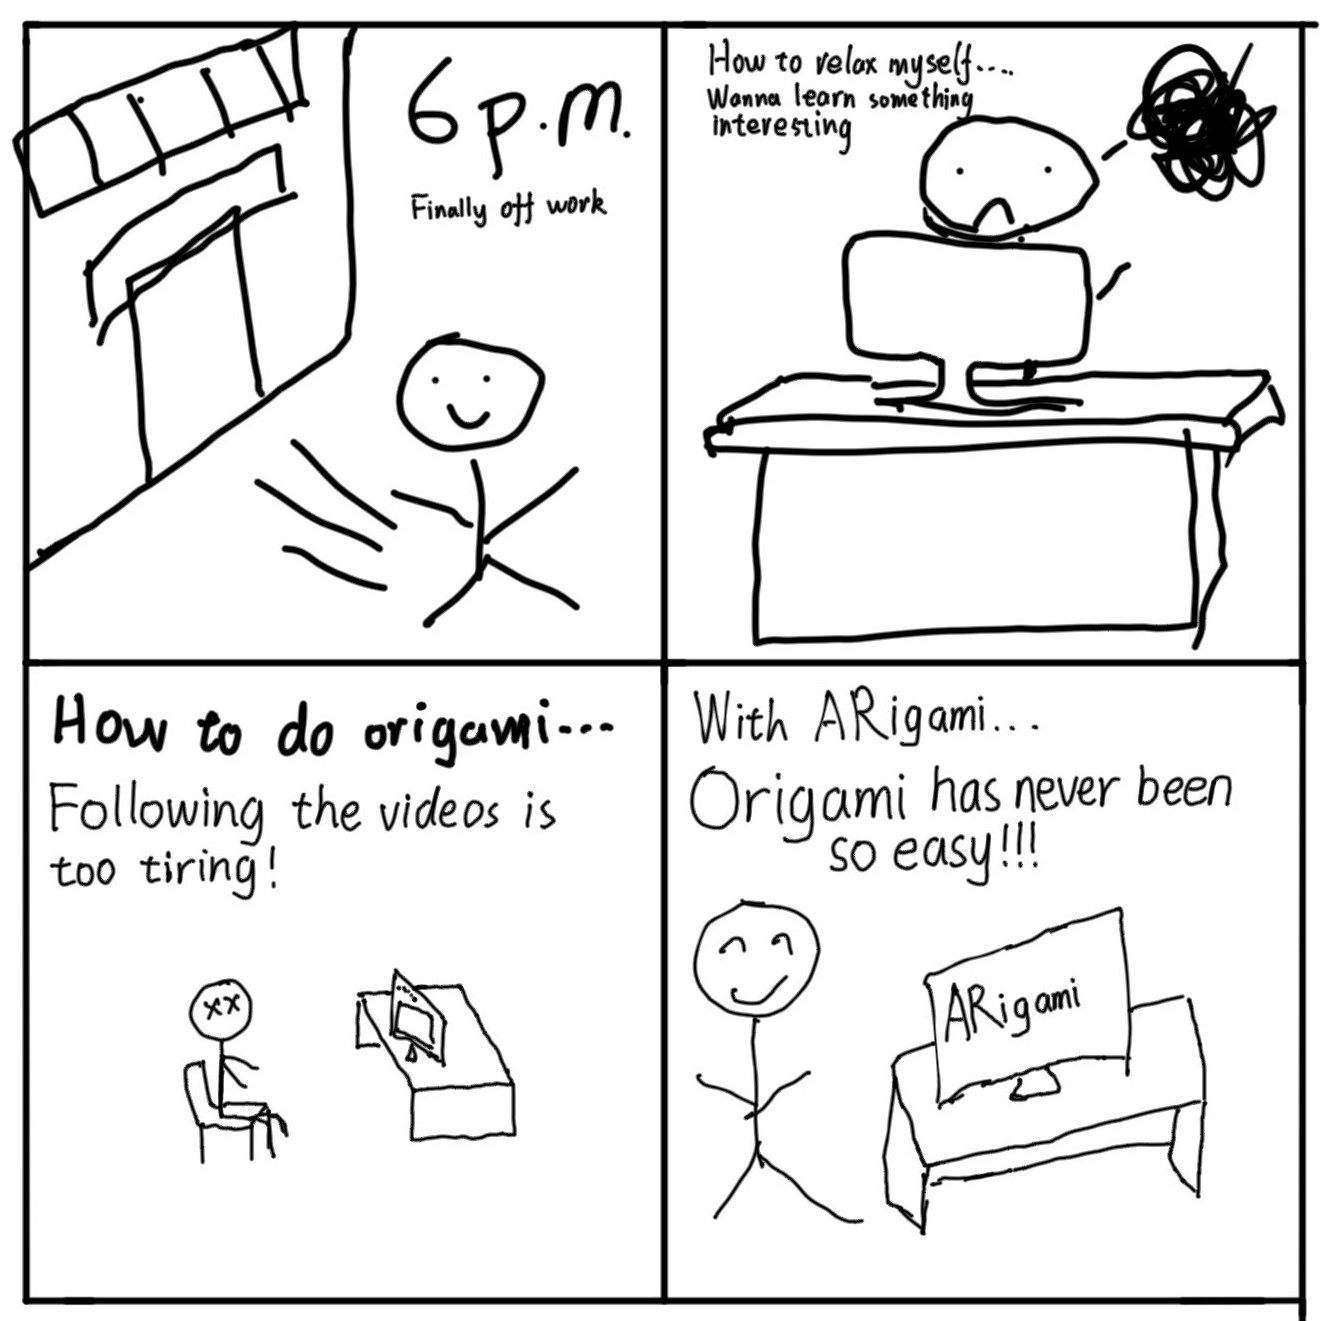 6 p.m.
Finally off work
How to relax myself....
Wanna learn something
interesting
How to do origami...
Following the videos is
too tiring!
With ARigami...
Origami has never been
so easy!!!
ARigami